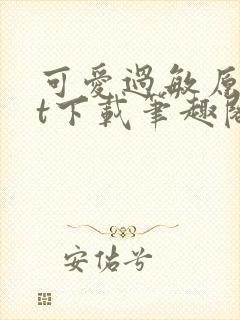 可愛過敏原
t下載筆趣閣
安佑兮